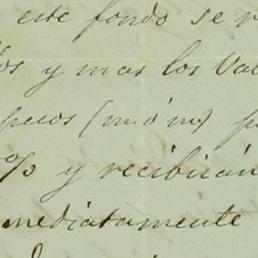 este fondo se
y mas los Val
pesos (m. ó m)
% y recibirán
mediatamente